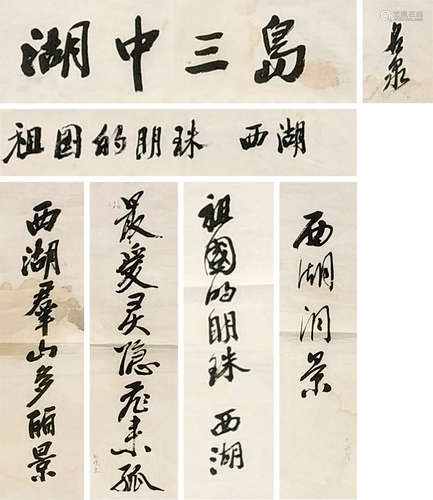 湖中三島
名泉
祖国的明珠 西湖
西湖羣山多丽景
最爱灵隐
祖國的明珠 西湖
西湖洞景